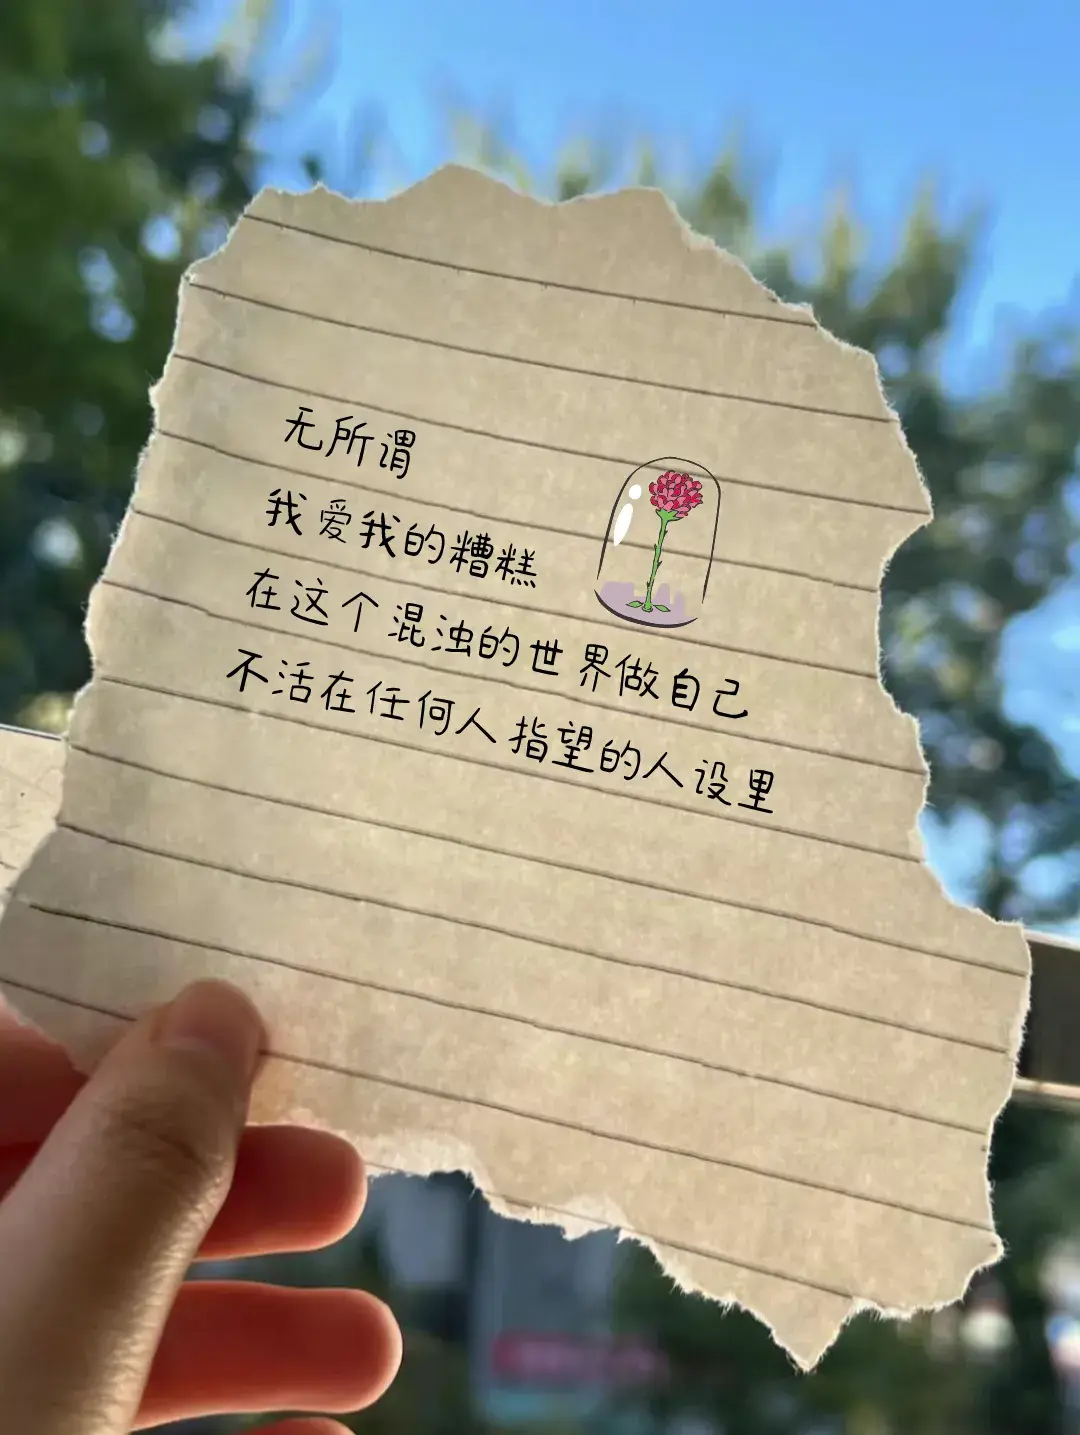 无所谓
我爱我的糟糕
在这个混浊的世界做自己
不活在任何人指望的人设里